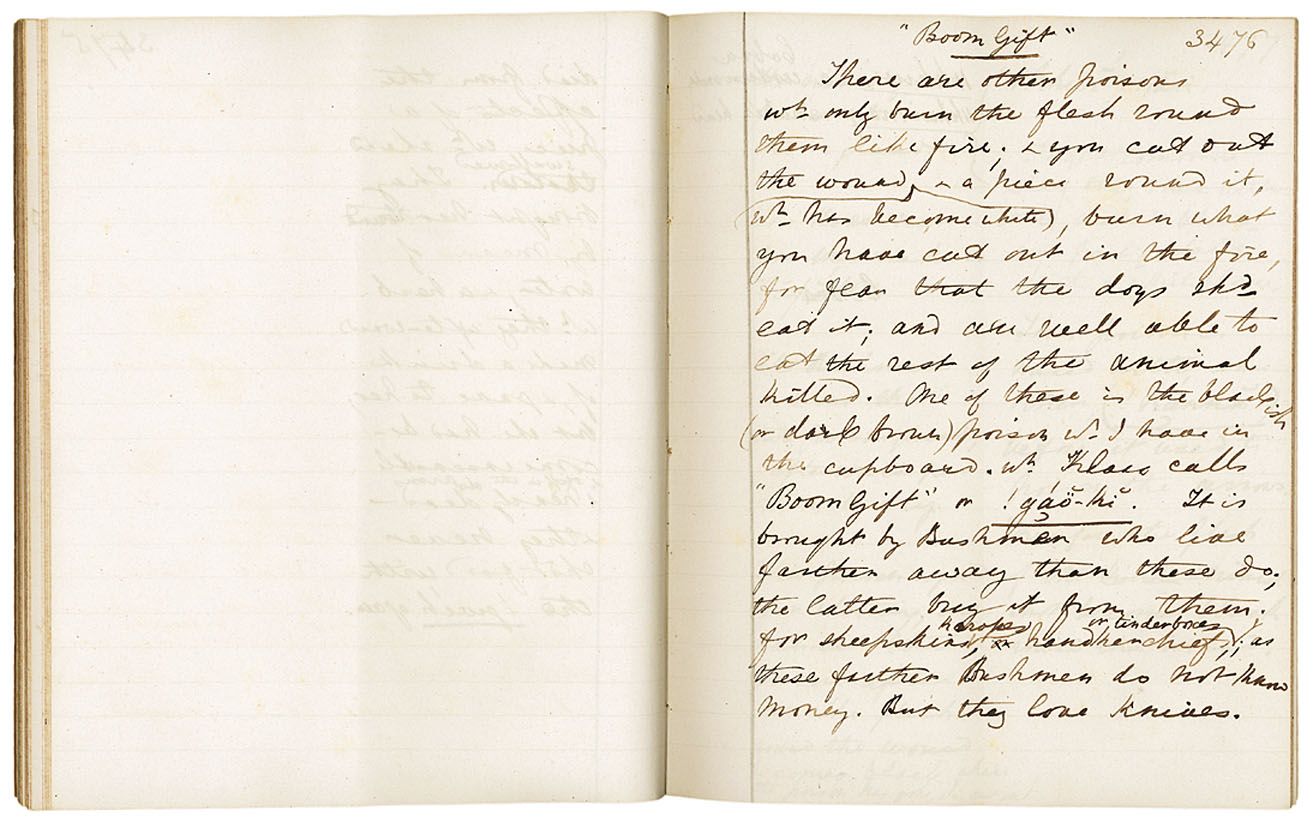 "Boom Gift" 3476
There are other poisons
wh only burn the flesh round
them like fire; & you cut out
the wound, & a piece round it,
(wh has become white), burn what
you have cut out in the fire,
for fear that the dogs shd
eat it; and are well able to
eat the rest of the animal
killed. One of these is the blackish
(or dark brown) poison wh I have in
the cupboard. wh Klaas calls
"Boom Gift" or !gáö-kĭ. It is
brought by Bushmen who live
farther away than these do;
the latter buy it from them.
karosses or tinderboxes
for sheepskins, or handkerchiefs; as
these farther Bushmen do not know
money. But they love knives.